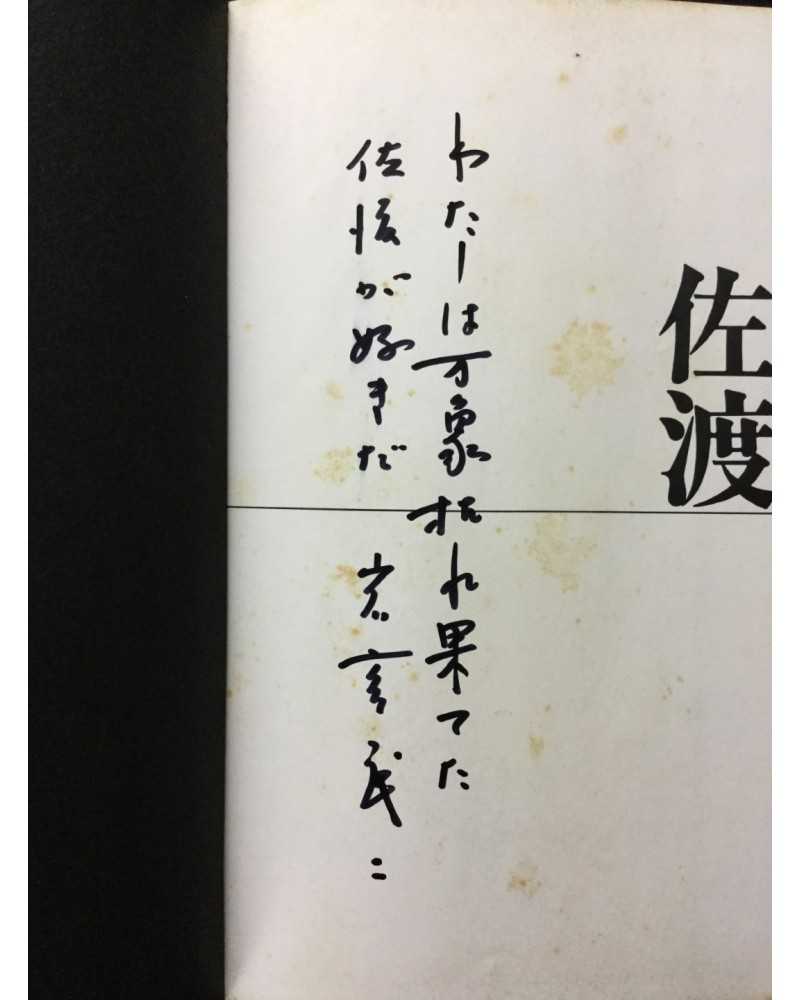 佐渡
わたしは万象枯れ果てた
佐渡が好きだ 岩宮武二